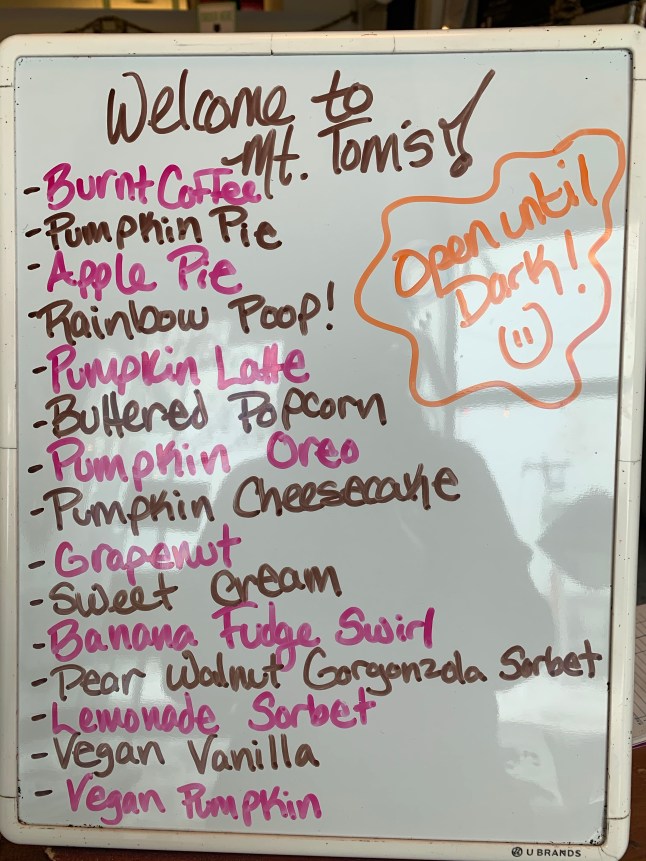 Welcome to
Mt. Tom's!
Open until
Dark!
- Burnt Coffee
- Pumpkin Pie
- Apple Pie
- Rainbow Poop!
- Pumpkin Latte
- Buttered Popcorn
- Pumpkin Oreo
- Pumpkin Cheesecake
- Grapenut
- Sweet Cream
- Banana Fudge Swirl
- Pear Walnut Gorgonzola Sorbet
- Lemonade Sorbet
- Vegan Vanilla
- Vegan Pumpkin
U BRANDS